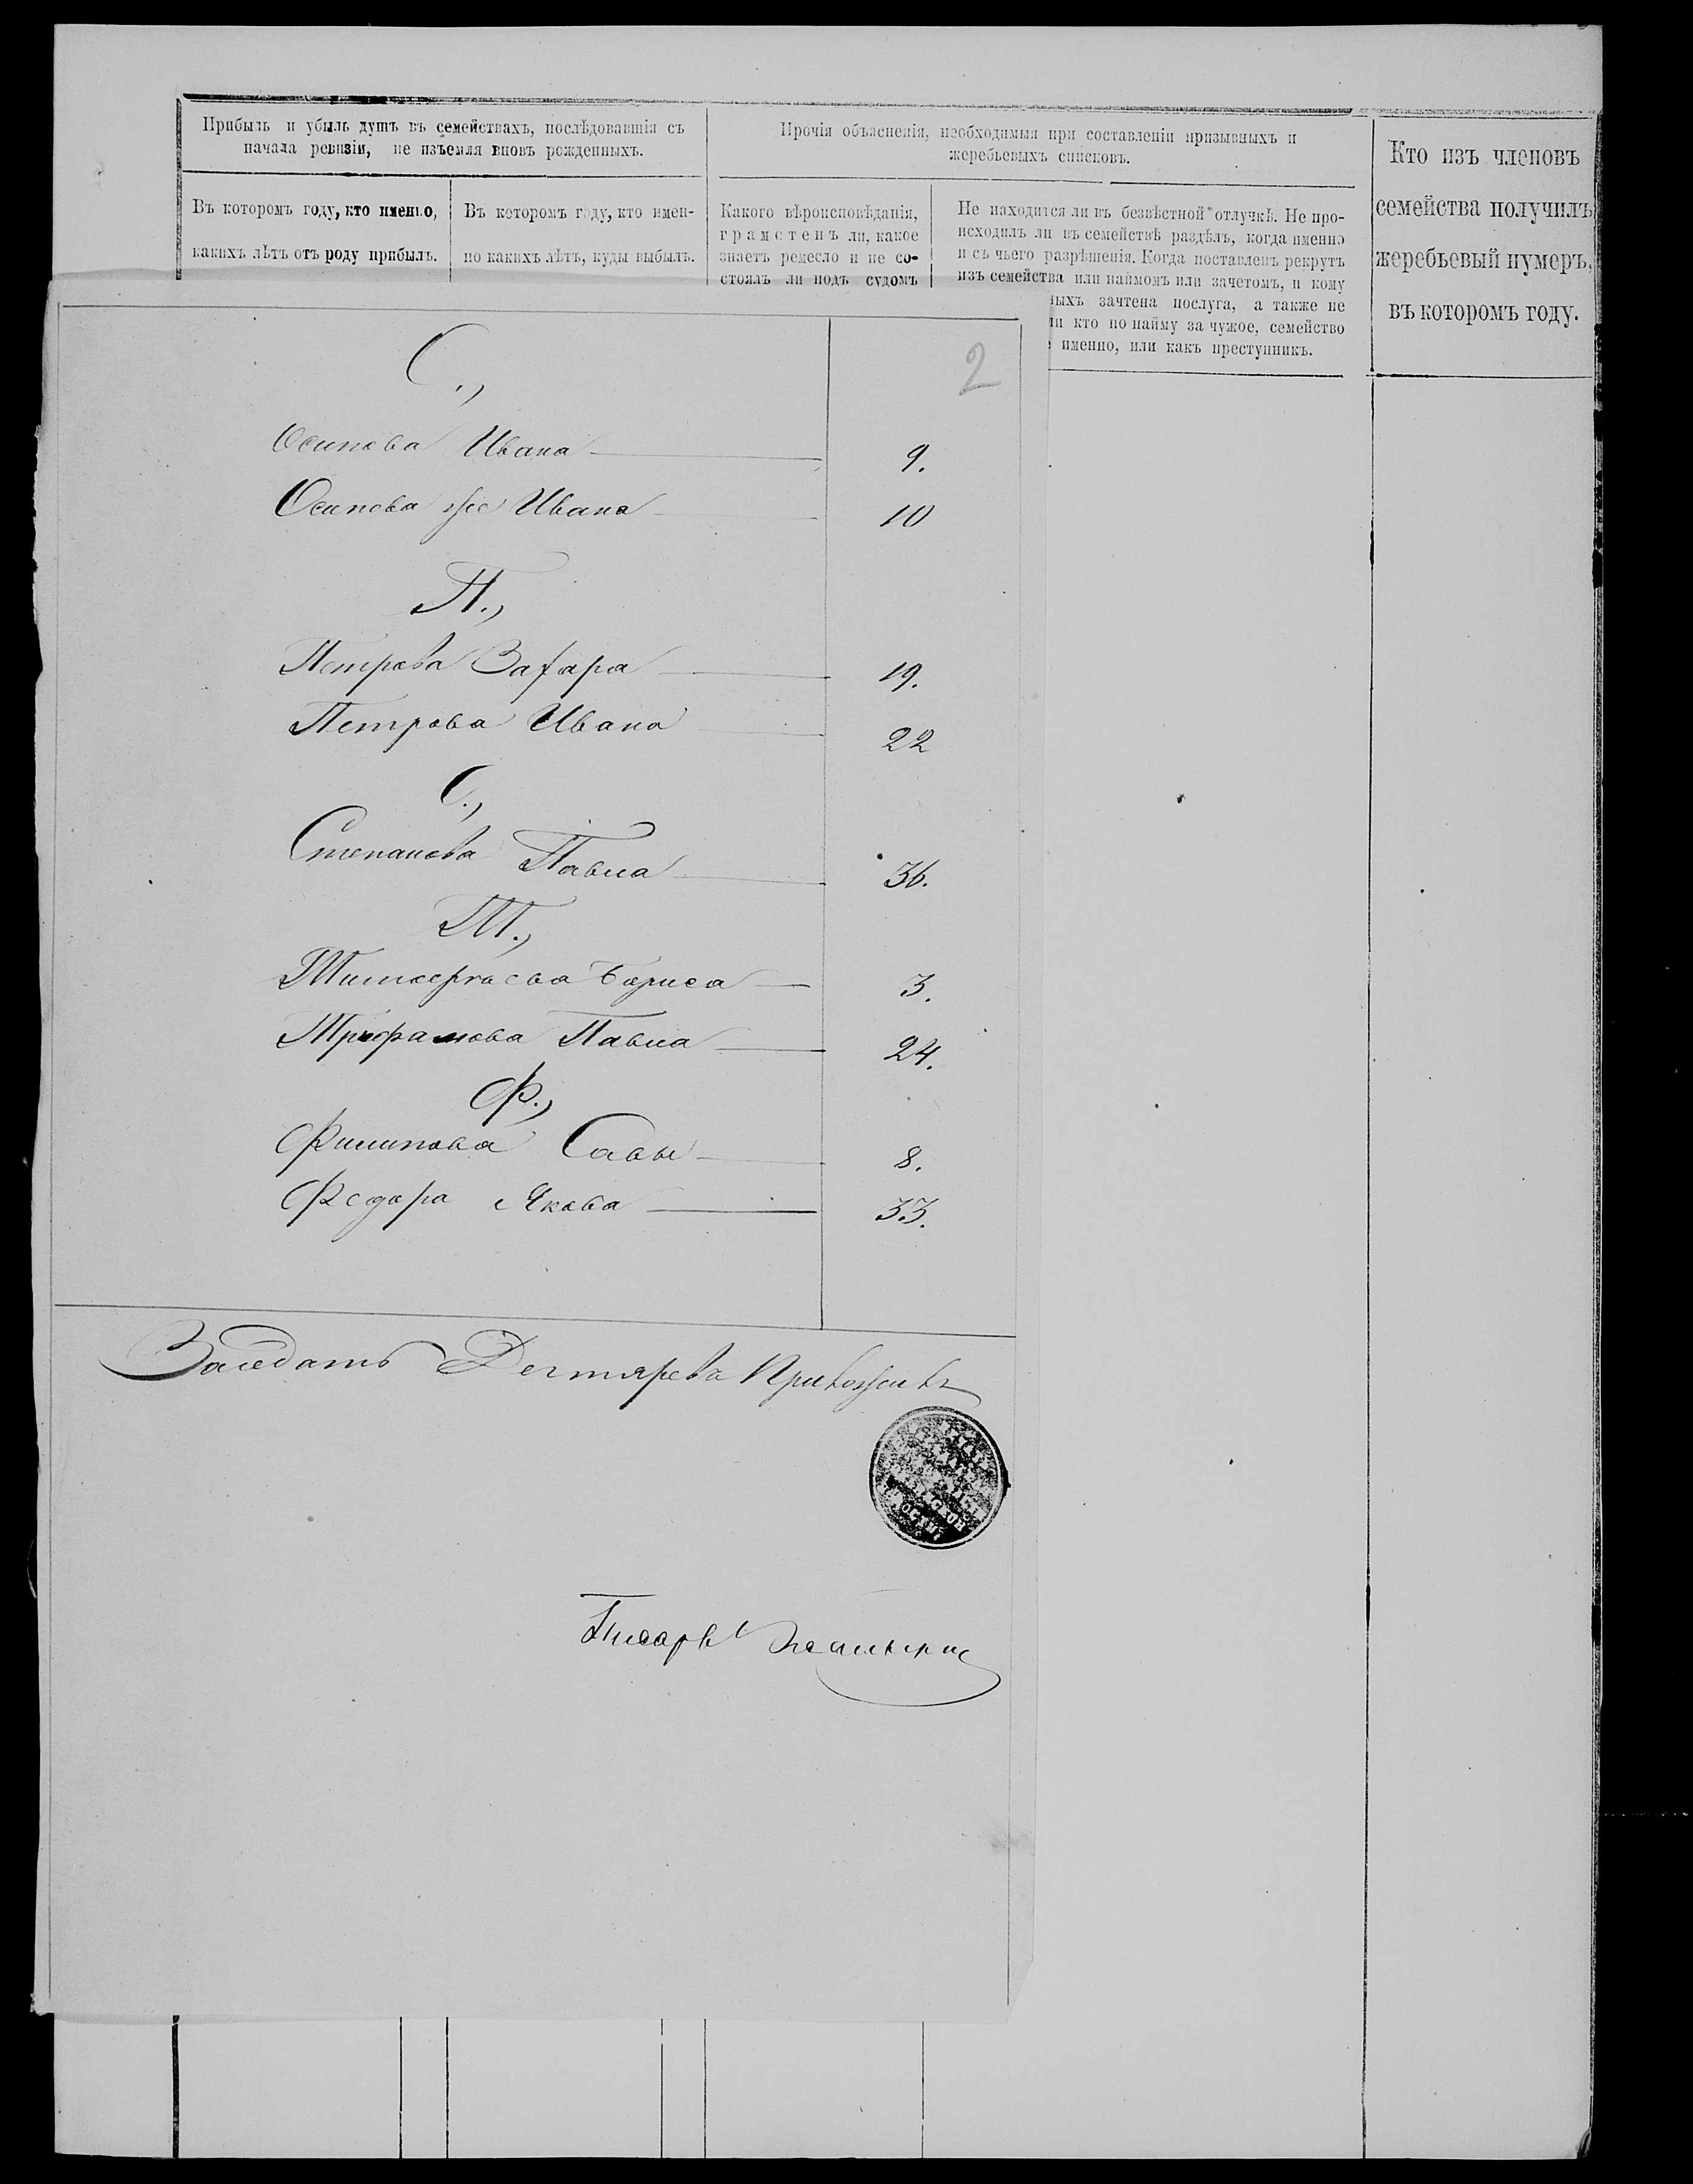 Прибыль и убыль душъ въ семействахъ, послѣдовавшія съ
начала ревизіи, не изъемля вновь рожденныхъ.
Прочія объясненія, необходимыя при составленіи призывныхъ и
жеребьевыхъ списковъ.
Кто изъ членовъ
семейства получилъ
жеребьевый нумеръ,
въ которомъ году.
Въ которомъ году, кто именно,
какихъ лѣтъ отъ роду прибылъ.
Въ которомъ году, кто имен-
но какихъ лѣтъ, куды выбылъ.
Какого вѣроисповѣданія,
грамотенъ ли, какое
знаетъ ремесло и не со-
стоялъ ли подъ судомъ
Не находится ли въ безвѣстной отлучкѣ. Не про-
исходилъ ли въ семействѣ раздѣлъ, когда именно
и съ чьего разрѣшенія. Когда поставленъ рекрутъ
изъ семейства или наймомъ или зачетомъ, и кому
ыхъ зачтена послуга, а также не
ли кто по найму за чужое, семейство
именно, или какъ преступникъ.
2
Осипова Ивана 9.
Осипова же Ивана 10
П.,
Петрова Захара 19.
Петрова Ивана 22
С.,
Степанова Павла 36.
Т.,
Тимофеева Бориса 3.
Трифамова Павла 24.
Ф.,
Филипова Савы 8.
Федора Якова 33.
Заседатъ Дегтярева Приложилъ
Писарь